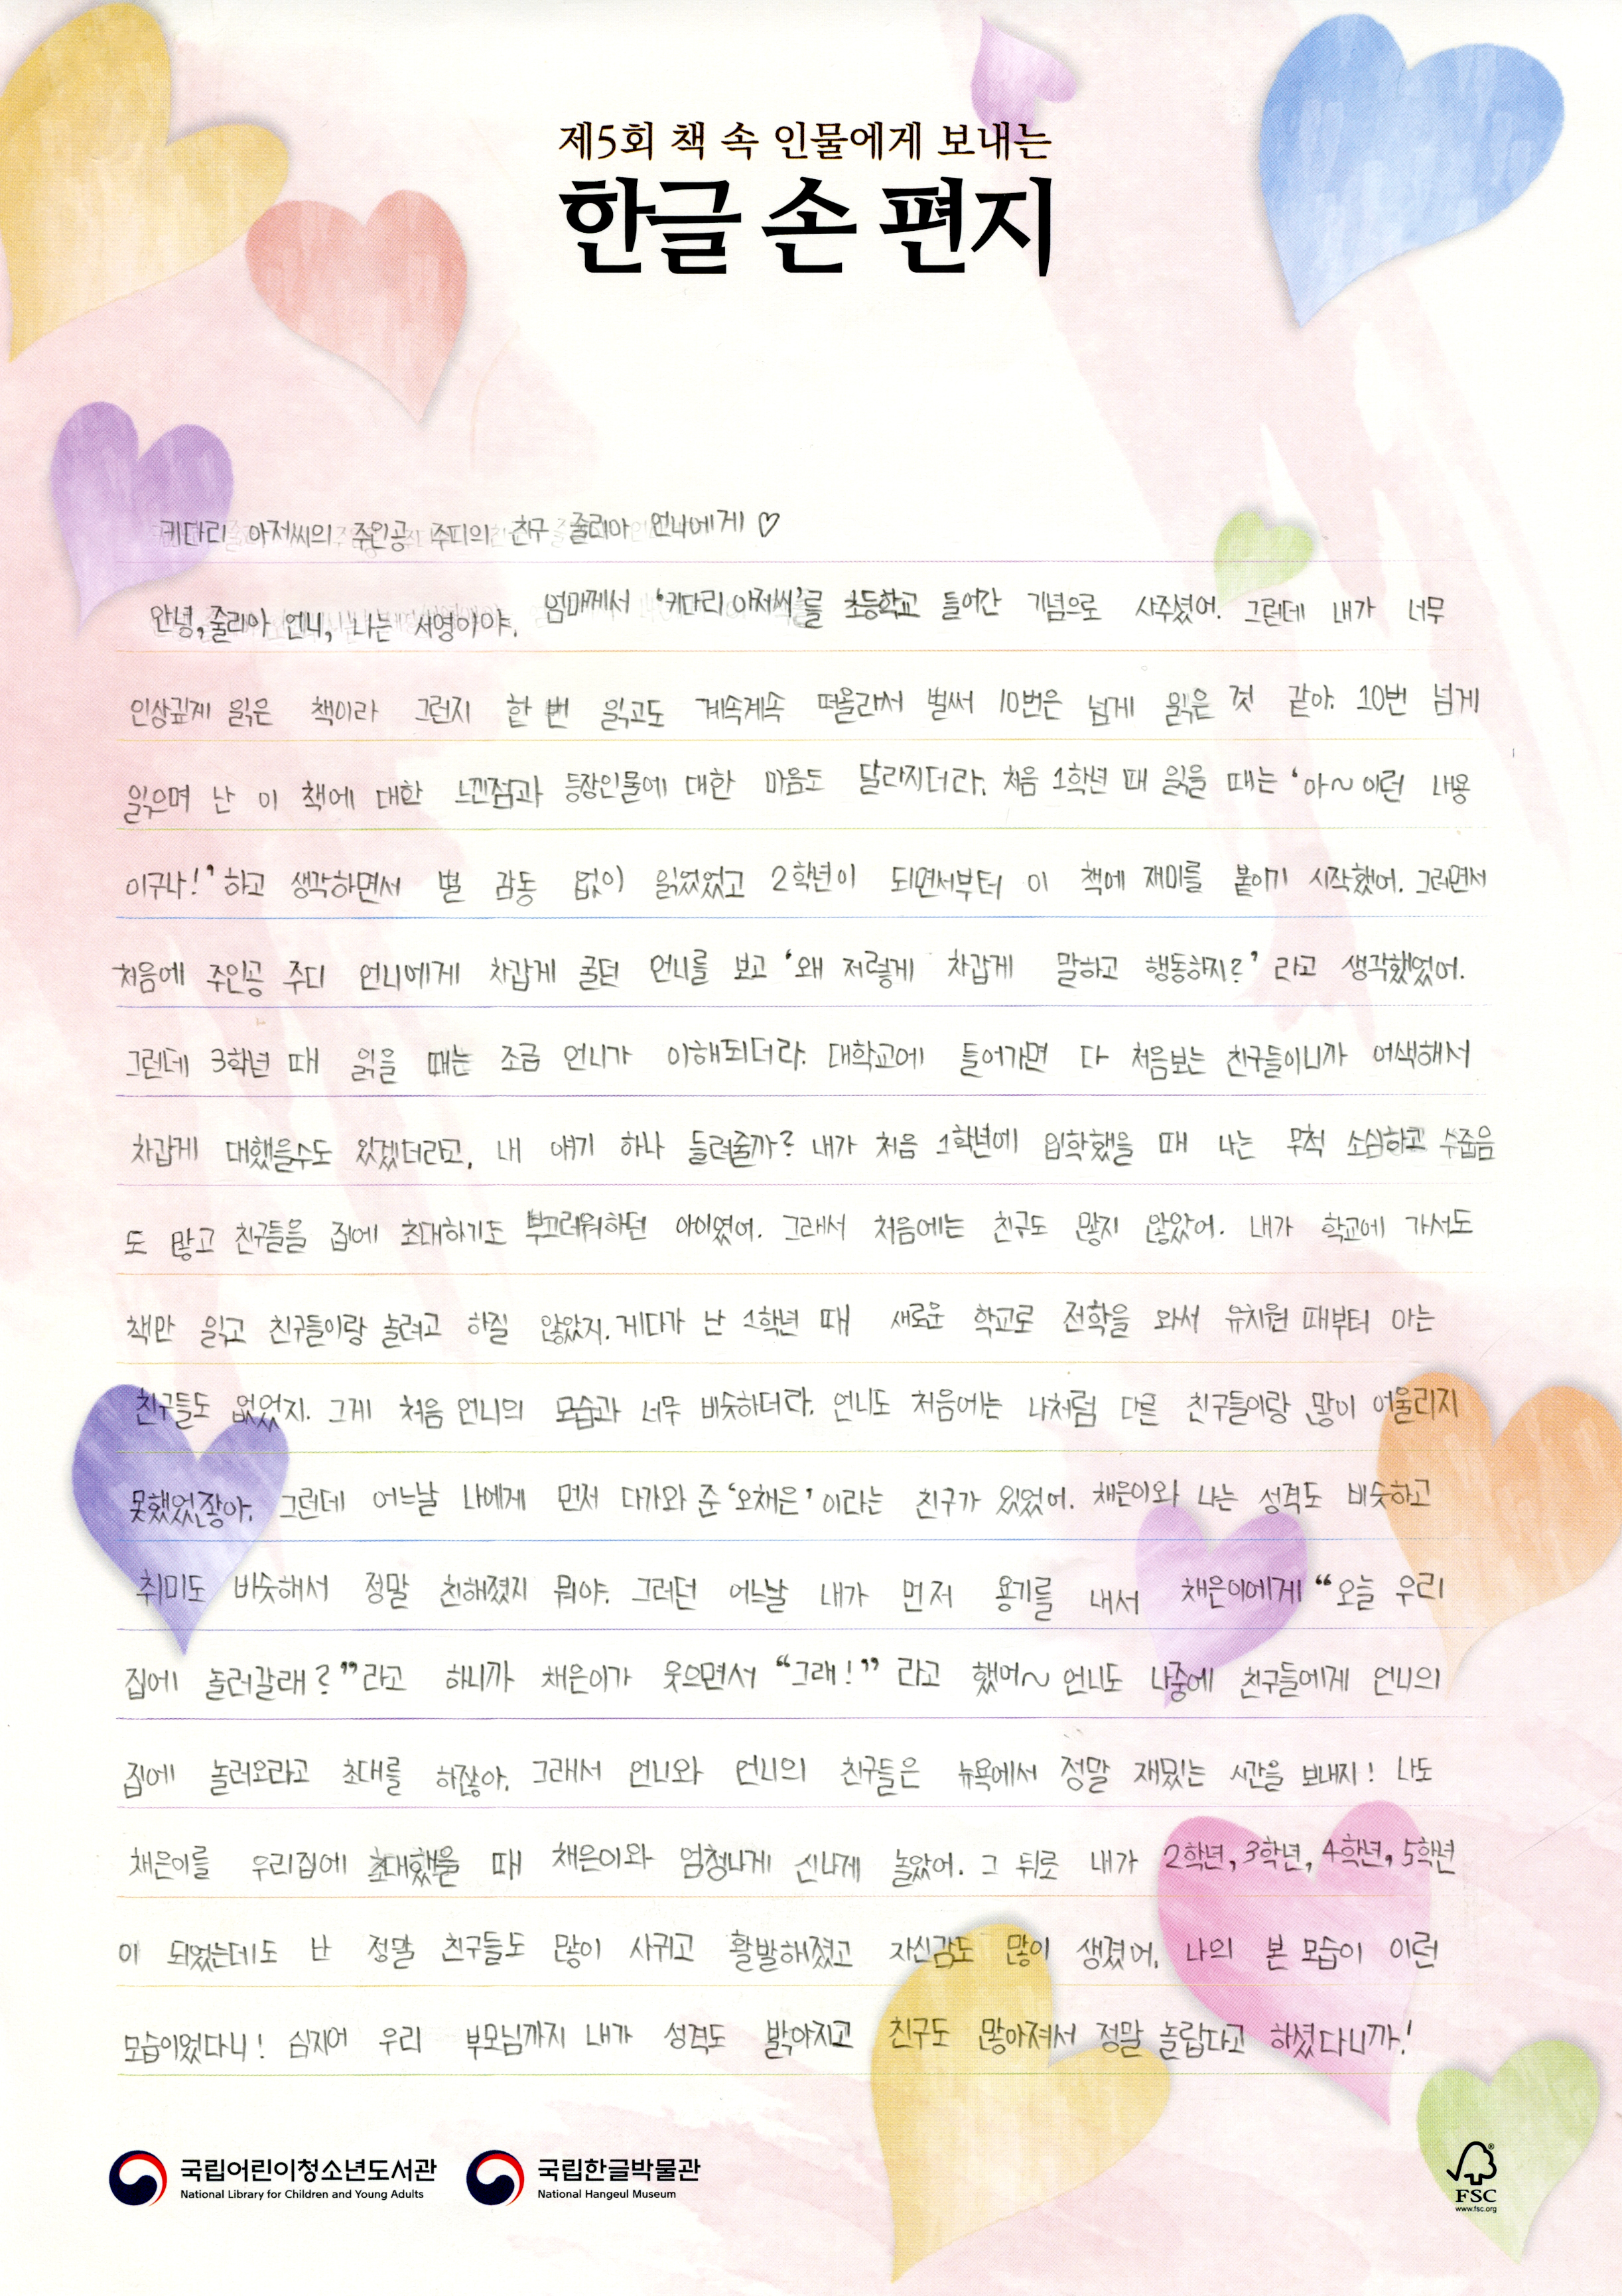 제5회 책 속 인물에게 보내는
한글 손 편지
키다리 아저씨의 주인공 주디의 친구 줄리아 언니에게 ♡
안녕, 줄리아 언니, 나는 서영이야. 엄마께서 '키다리 아저씨'를 초등학교 들어간 기념으로 사주셨어. 그런데 내가 너무
인상깊게 읽은 책이라 그런지 한 번 읽고도 계속계속 떠올라서 벌써 10번은 넘게 읽은 것 같아. 10번 넘게
읽으며 난 이 책에 대한 느낀점과 등장인물에 대한 마음도 달라지더라. 처음 1학년 때 읽을 때는 '아~ 이런 내용
이구나!' 하고 생각하면서 별 감동 없이 읽었었고 2학년이 되면서부터 이 책에 재미를 붙이기 시작했어. 그러면서
처음에 주인공 주디 언니에게 차갑게 굴던 언니를 보고 '왜 저렇게 차갑게 말하고 행동하지?' 라고 생각했었어.
그런데 3학년 때 읽을 때는 조금 언니가 이해되더라. 대학교에 들어가면 다 처음보는 친구들이니까 어색해서
차갑게 대했을수도 있겠더라고, 내 얘기 하나 들려줄까? 내가 처음 1학년에 입학했을 때 나는 무척 소심하고 수줍음
도 많고 친구들을 집에 초대하기도 부끄러워하던 아이였어. 그래서 처음에는 친구도 많지 않았어. 내가 학교에 가서도
책만 읽고 친구들이랑 놀려고 하질 않았지. 게다가 난 1학년 때 새로운 학교로 전학을 와서 유치원 때부터 아는
친구들도 없었지. 그게 처음 언니의 모습과 너무 비슷하더라. 언니도 처음에는 나처럼 다른 친구들이랑 많이 어울리지
못했었잖아. 그런데 어느날 나에게 먼저 다가와 준 '오채은' 이라는 친구가 있었어. 채은이와 나는 성격도 비슷하고
취미도 비슷해서 정말 친해졌지 뭐야. 그러던 어느날 내가 먼저 용기를 내서 채은이에게 "오늘 우리
집에 놀러갈래?" 라고 하니까 채은이가 웃으면서 "그래!" 라고 했어~ 언니도 나중에 친구들에게 언니의
집에 놀러오라고 초대를 하잖아. 그래서 언니와 언니의 친구들은 뉴욕에서 정말 재밌는 시간을 보내지! 나도
채은이를 우리집에 초대했을 때 채은이와 엄청나게 신나게 놀았어. 그 뒤로 내가 2학년, 3학년, 4학년, 5학년
이 되었는데도 난 정말 친구들도 많이 사귀고 활발해졌고 자신감도 많이 생겼어. 나의 본 모습이 이런
모습이었다니! 심지어 우리 부모님까지 내가 성격도 밝아지고 친구도 많아져서 정말 놀랍다고 하셨다니까!
국립어린이청소년도서관
National Library for Children and Young Adults
국립한글박물관
National Hangeul Museum
FSC
www.fsc.org